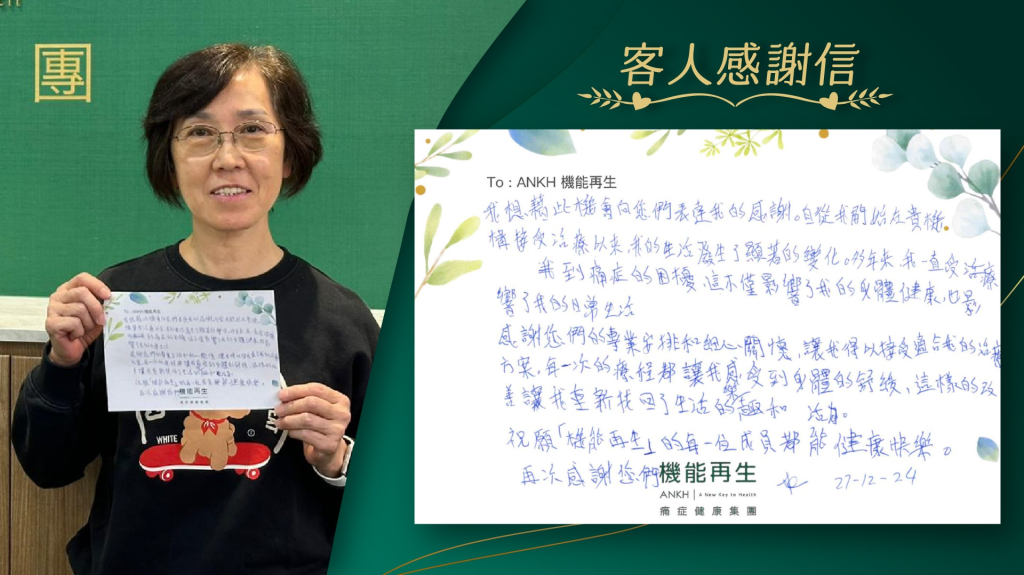 專
客人感謝信
To : ANKH 機能再生
我想藉此機會向您們表達我的感謝。自從我開始在貴機
構接受治療以來，我的生活發生了顯著的變化。多年來，我一直受治療
我到痛症的困擾，這不僅影響了我的身體健康，也影
響了我的日常生活
感謝您們的專業安排和細心關懷，讓我得以接受適合我的治療
方案，每一次的療程都讓我感受到身體的舒緩，這樣的改
善讓我重新找回了生活的樂趣和 活力。
祝願「機能再生」的每一位成員都能健康快樂。
再次感謝您們
機能再生
ANKH | A New Key to Health
痛症健康集團
27-12-24
WHITE